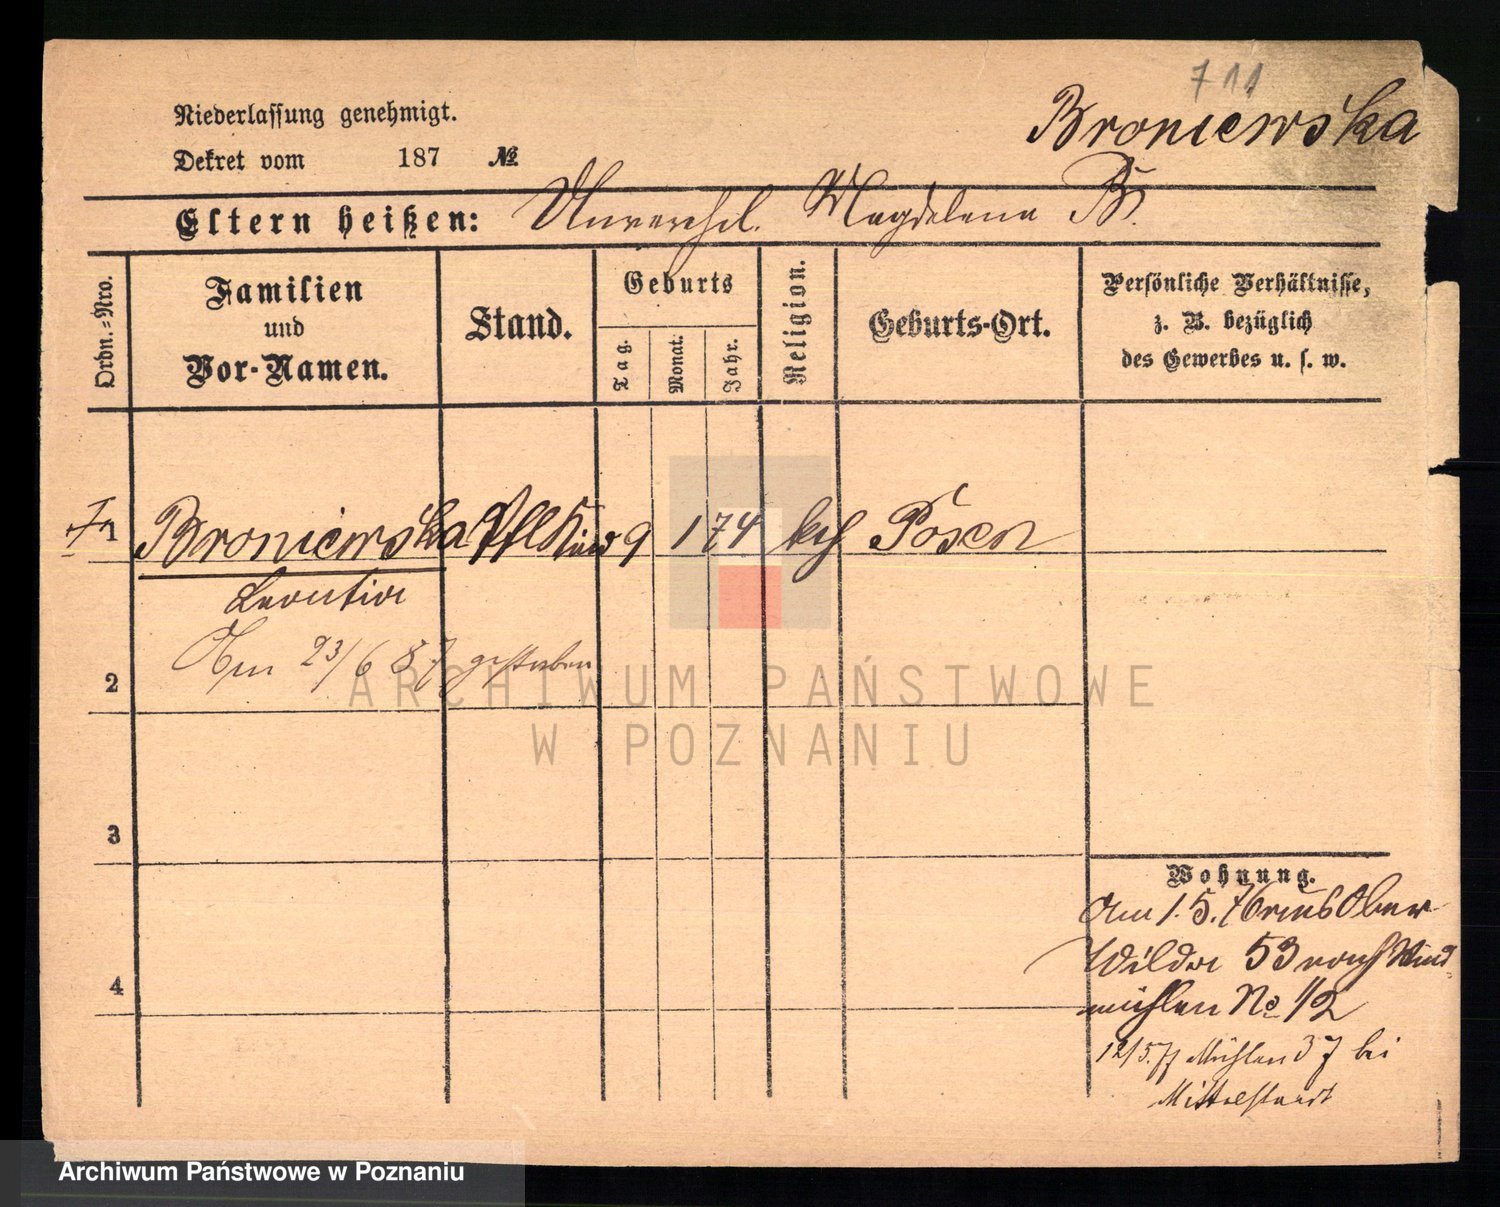 711
Broniewska
Niederlassung genehmigt.
Dekret vom 187 №
Eltern heißen: Unverehel. Magdalena Br.
Ordn.=Nro.
Familien
und
Vor-Namen.
Stand.
Geburts
Tag.
Monat.
Jahr.
Religion.
Geburts-Ort.
Persönliche Verhältnisse,
z. B. bezüglich
des Gewerbes u. s. w.
1 Broniewska Pfl Kind 9 1 74 kth Posen
Leontia
Am 23/6 87 gestorben
2
3
4
Wohnung.
Am 1.5.76 Ober
Wilda 53 nach Wind
mühlen No 12
12/5.77 Mühlen 37 bei
Mittelstaedt
ARCHIWUM PAŃSTWOWE
W POZNANIU
Archiwum Państwowe w Poznaniu